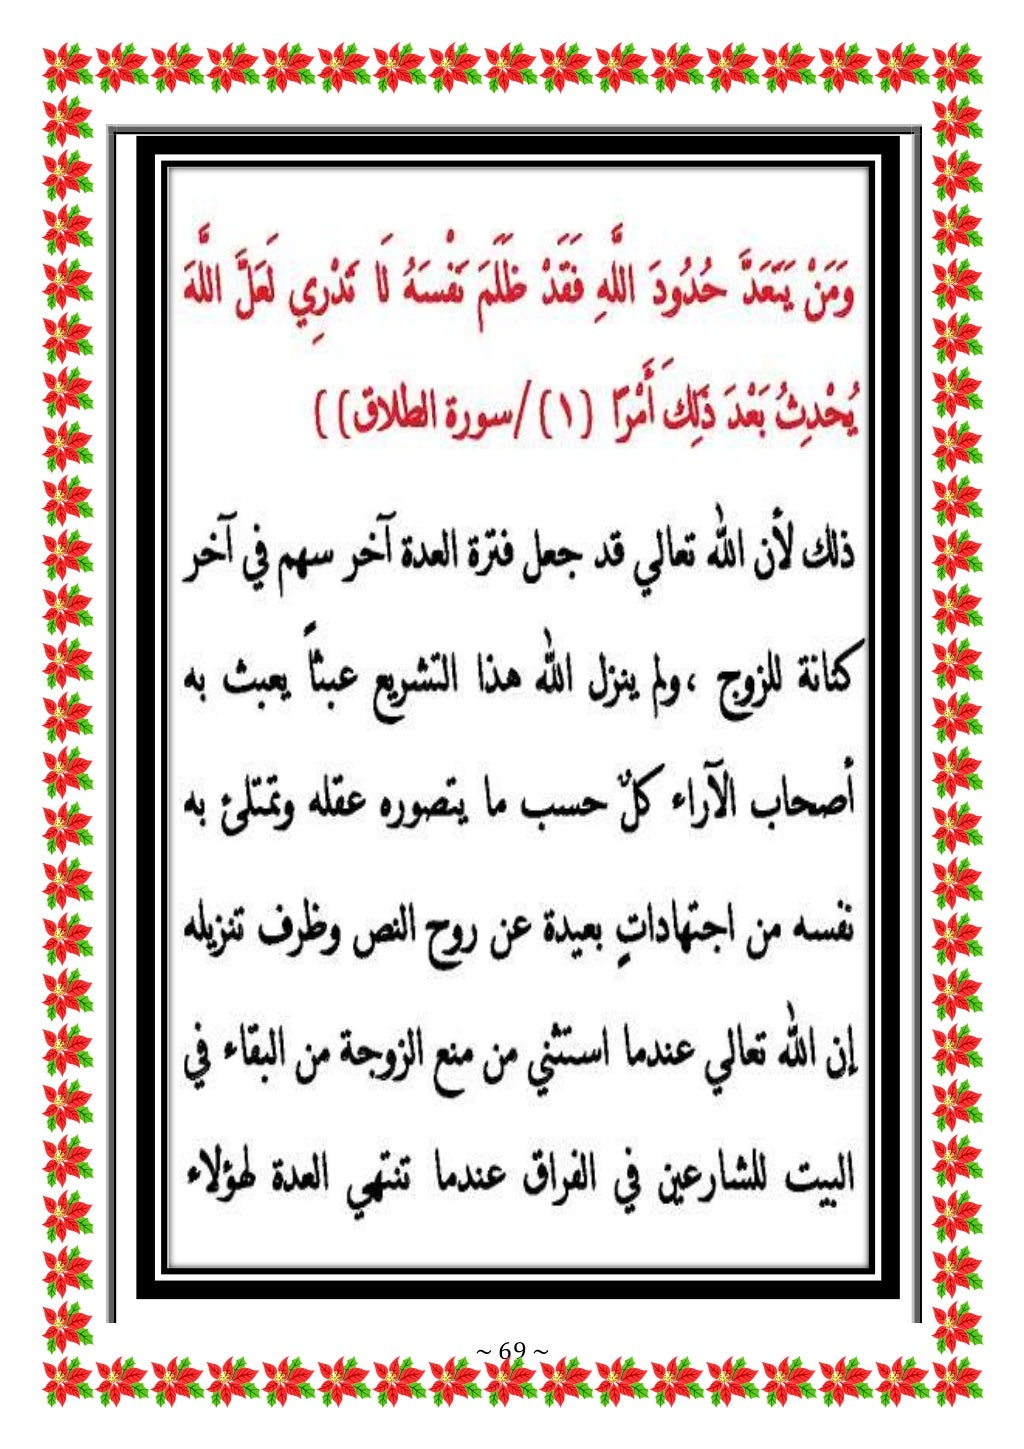 وَمَنْ يَتَعَدَّ حُدُودَ اللَّهِ فَقَدْ ظَلَمَ نَفْسَهُ لَا تَدْرِي لَعَلَّ اللَّهَ
يُحْدِثُ بَعْدَ ذَلِكَ أَمْرًا (١) /سورة الطلاق) )
ذلك لأن الله تعالي قد جعل فترة العدة آخر سهم في آخر
كنانة للزوج ،ولم ينزل الله هذا التشريع عبثاً يعبث به
أصحاب الآراء كلٌ حسب ما يتصوره عقله وتمتلئ به
نفسه من اجتهاداتٍ بعيدة عن روح النص وظرف تنزيله
إن الله تعالي عندما استثني من منع الزوجة من البقاء في
البيت للشارعين في الفراق عندما تنتهي العدة لهؤلاء
~ 69 ~